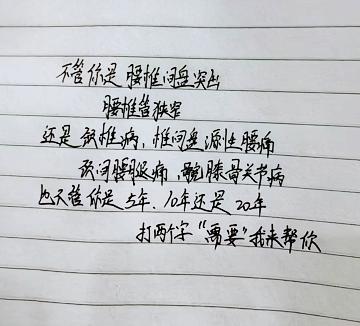 不管你是腰椎间盘突出
腰椎管狭窄
还是颈椎病，椎间盘源性腰痛
颈间腰腿痛，髋膝骨关节病
也不管你是5年、10年还是20年
打两个字“需要”我来帮你